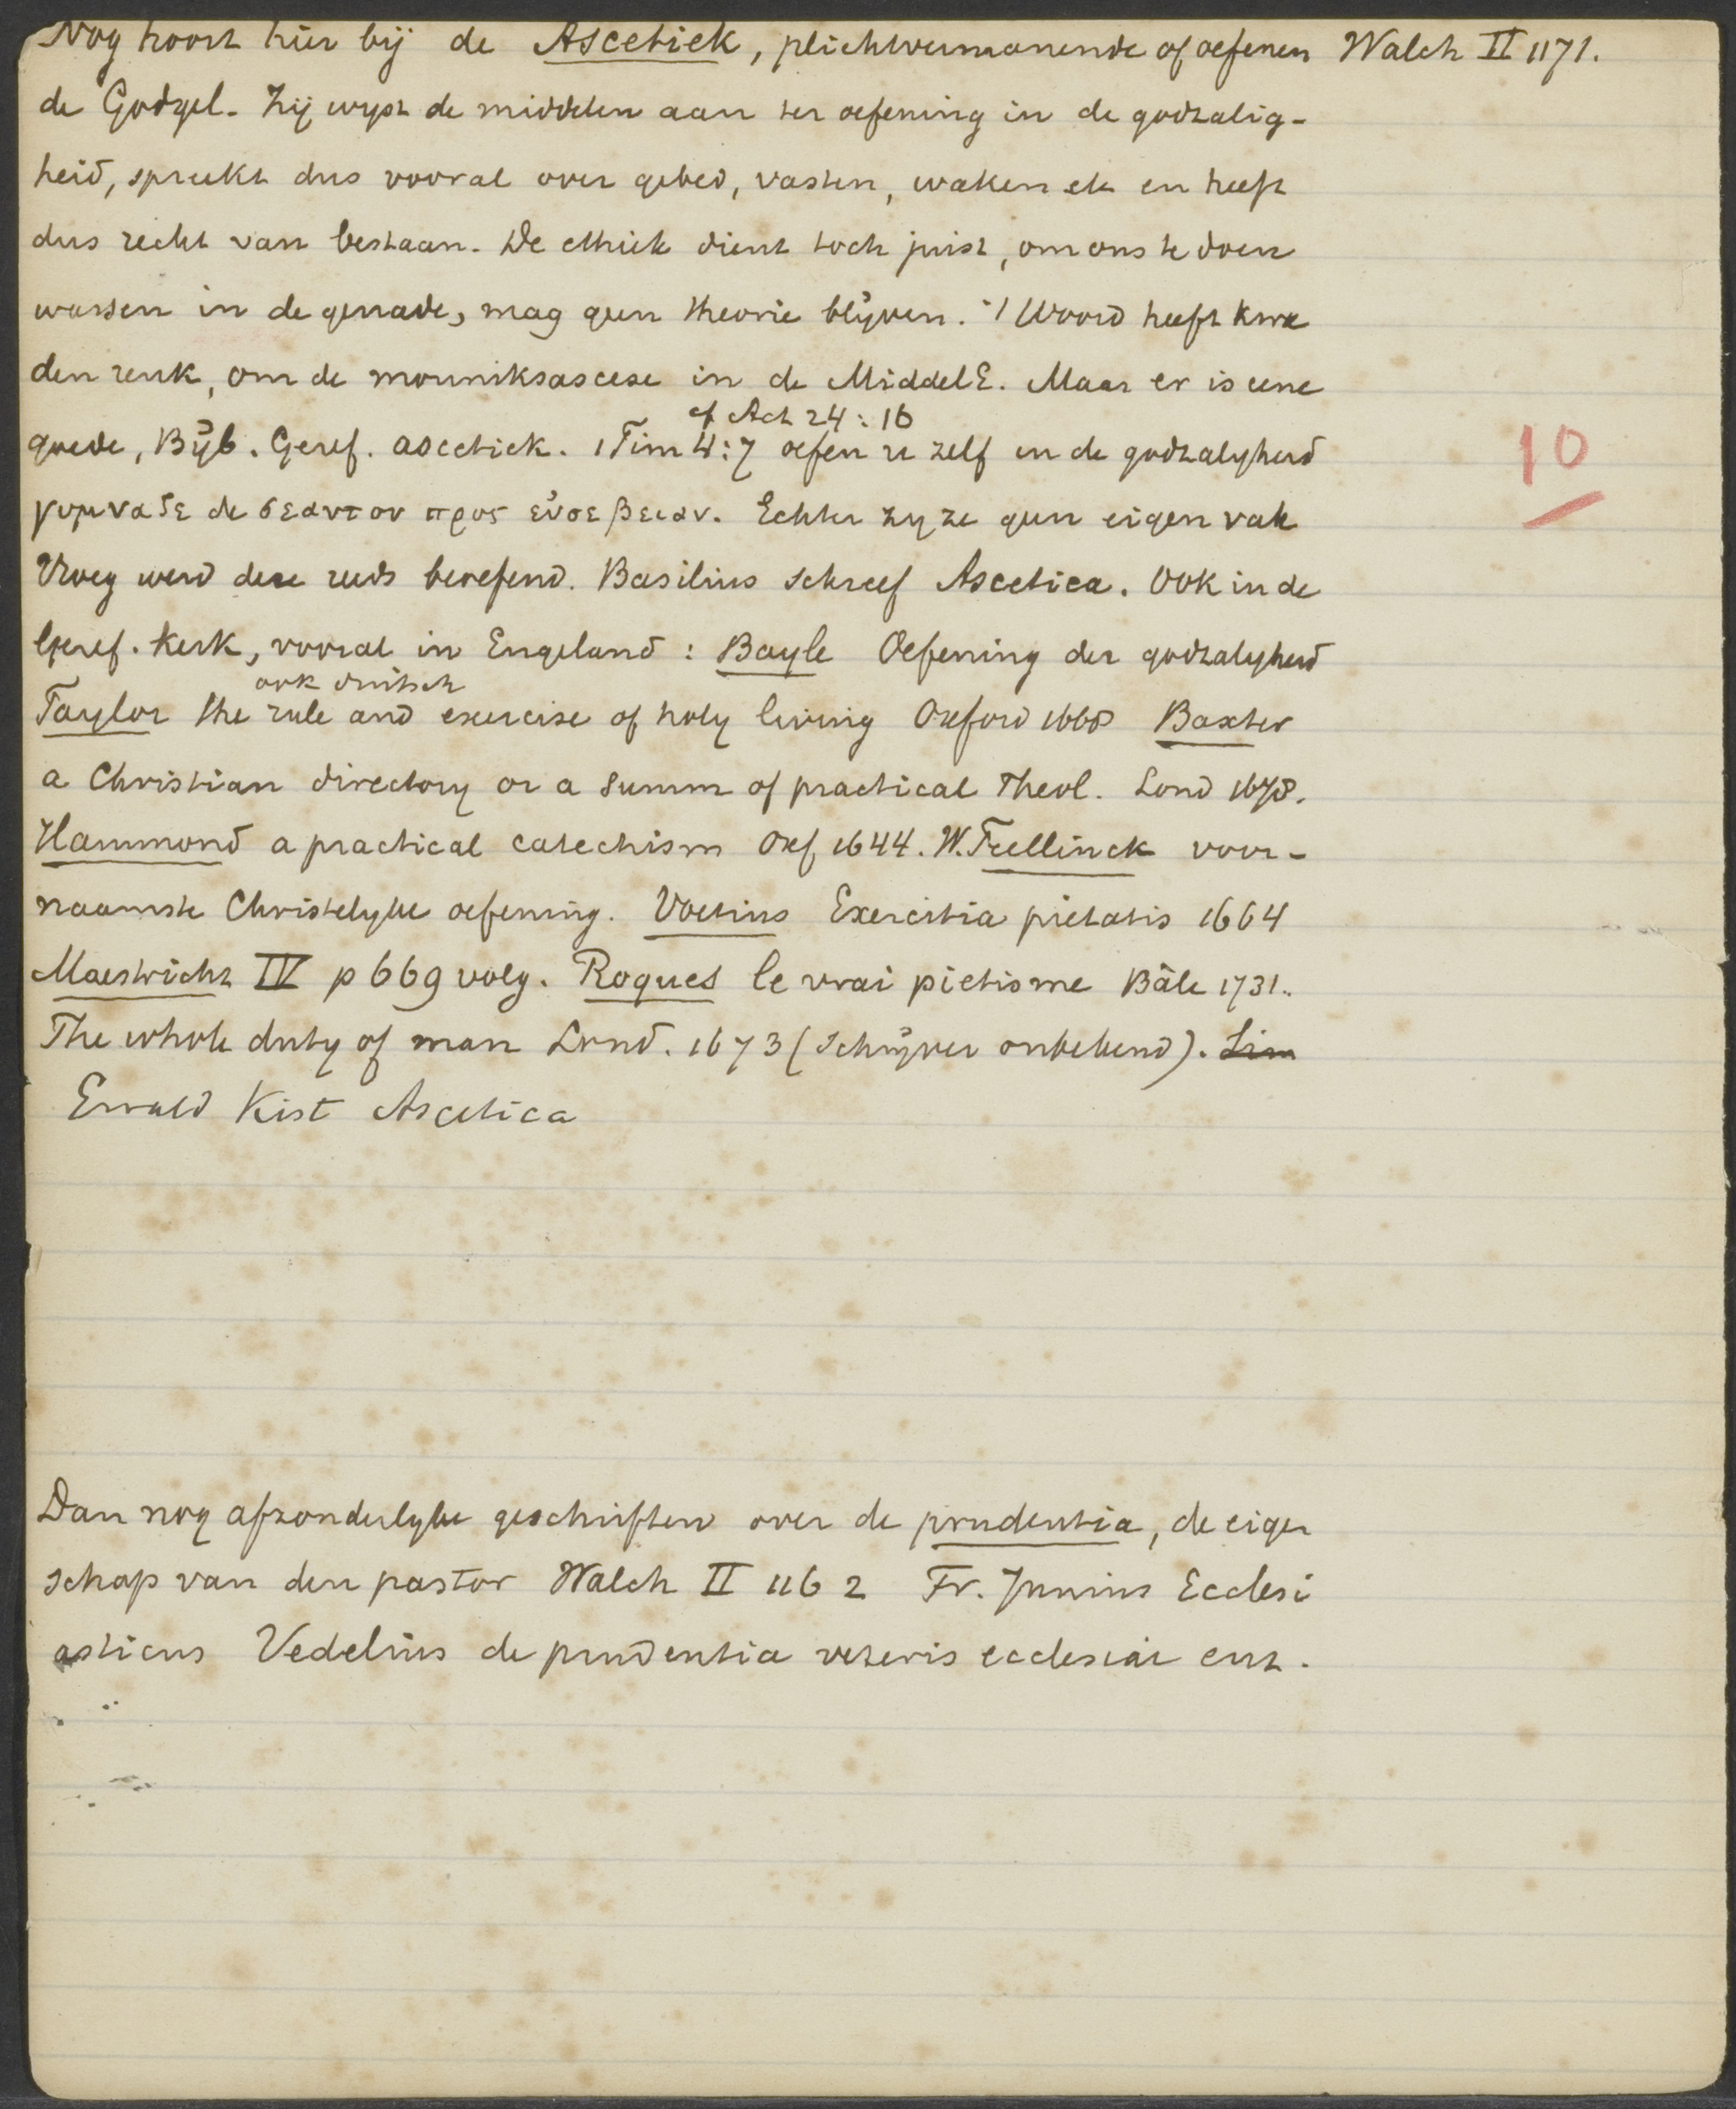 Nog hoort hier bij de Ascetiek, plichtvermanende of oefenen Walch II 1171.
de Godgel. Zij wijst de middelen aan ter oefening in de godzalig-
heid, spreekt dus vooral over gebed, vasten, waken etc en heeft
dus recht van bestaan. De ethiek dient toch juist, om ons te doen
wassen in de genade, mag geen theorie blijven. 't Woord heeft kwa
den reuk, om de monniksascese in de MiddelE. Maar er is eene
cf Act 24:16
goede, Bijb. Geref. ascetiek. 1 Tim 4:7 oefen u zelf in de godzalijheid
γυμναζε δε σεαυτον προς εὐσεβειαν. Echter zij ze geen eigen vak
Vroeg werd deze reeds beoefend. Basilius schreef Ascetica. Ook in de
Geref. kerk, vooral in Engeland: Bayle Oefening der godzalijheid
ook duitsch
Taylor the rule and exercise of holy living Oxford 1668 Baxter
a Christian directory or a summ of practical Theol. Lond 1678.
Hammond a practical catechism Oxf 1644. W. Teellinck voor-
naamste Christelijke oefening. Voetius Exercitia pietatis 1664
Maestricht IV p 669 volg. Roques le vrai pietisme Bâle 1731.
The whole duty of man Lond. 1673 (Schrijver onbekend). Lim
Ewald Kist Ascetica
10
Dan nog afzonderlijke geschriften over de prudentia, de eigen
schap van den pastor Walch II 1162 Fr. Junius Ecclesi
asticus Vedelius de prudentia veteris ecclesiae enz.